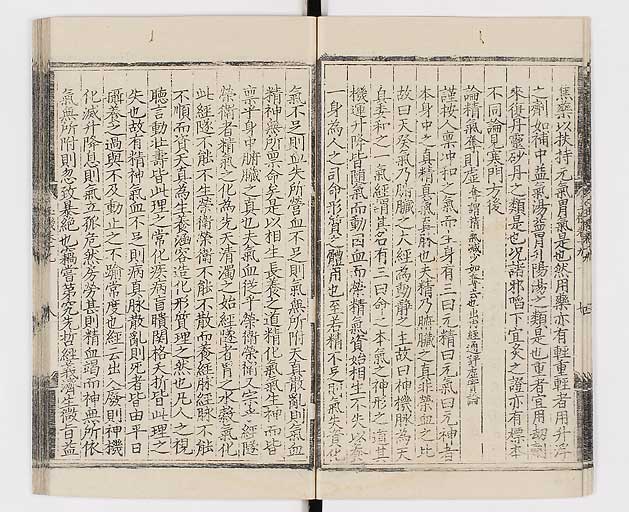 焦藥以扶持元氣胃氣是也然用藥亦有輕重輕者用升浮
之劑如補中益氣湯益胃升陽湯之類是也重者宜用
來復丹靈砂丹之類是也况諸邪暍下宜灸之證亦有標本
不同論見寒門方後
論精氣奪則虛
謹按人稟冲和之氣而生身有三曰元精曰元氣曰元神者
本身中之真精真氣真脉也夫精乃臟腑之真非榮血之比
故曰天癸氣乃臟腑之大經為動静之主故曰神機脉為天
真委和之一氣經謂其名有三曰命之本氣之神形之道其
機運升降皆隨氣而動因血而榮精氣資始相生不失以養
一身為人之司命形質之體用也至若精不足則氣失資化
氣不足則血失所營血不足則氣無所附天真散亂則氣血
精神無所稟命矣是以相生長養之道精化氣氣生神而皆
稟乎身中臟腑之真也夫氣血從乎榮衛榮衛又宗乎經隧
榮衛者精氣之化為先天清濁之始經隧者胃之水穀氣化
此經隧不能不生榮衛榮衛不能不散而養經脉經脉不能
不順而資天真為生養涵容造化形質理之然也凡人之視
聽言動壯壽皆此理之常化疾病盲聵關格夭折皆此理之
失也故有精神氣血不足則病真脉散亂則死者皆由平日
攝養之過與不及動止之不踰常度也經云出入廢則神機
化滅升降息則氣立孤危然房勞甚則精血竭而神無所依
氣無所附則忽致暴絕也竊嘗第究先哲經義滋生微旨益